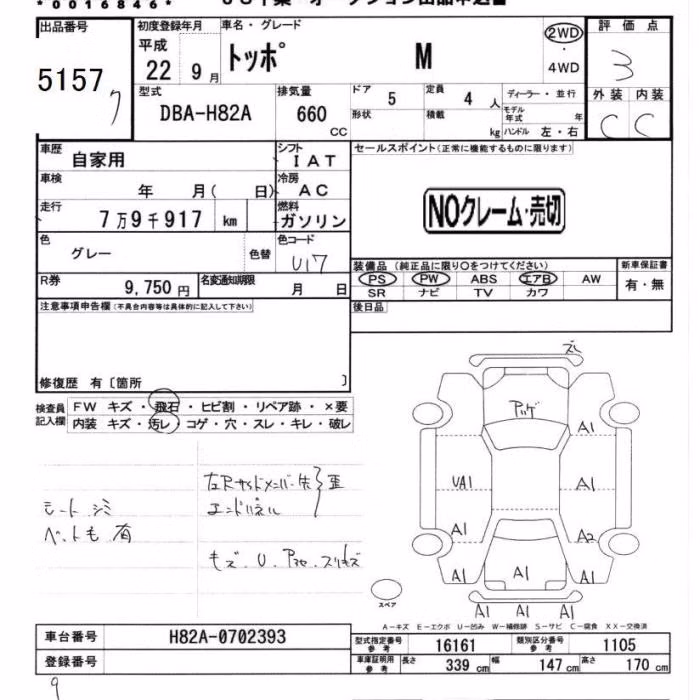 *0016846*
出品番号
5157
7
初度登録年月
平成
22 9月
車名・グレード
トッポ M
2WD
・
4WD
評価点
3
型式
DBA-H82A
排気量
660
CC
ドア 5
定員 4 人
形状
積載 kg
ディーラー・並行
モデル年式 年
ハンドル 左・右
外装 内装
C C
車歴
自家用
シフト
IAT
車検
年 月( 日)
冷房
AC
走行
7万9千917 km
燃料
ガソリン
色
グレー
色替
色コード
U17
R券
9,750円
名変通知期限
月 日
セールスポイント(正常に機能するものに限ります)
NOクレーム・売切
装備品 (純正品に限り○をつけてください)
PS PW ABS エアB AW
SR ナビ TV カワ
新車保証書
有・無
後日品
注意事項申告欄(不具合内容等は具体的に記入して下さい)
修復歴 有〔箇所 〕
検査員記入欄
FW キズ・飛石・ヒビ割・リペア跡・×要
内装 キズ・汚レ・コゲ・穴・スレ・キレ・破レ
シートシミ
ペットも有
左Rサイドメンバー先
エンドパネル
歪
キズ.U.
ズレ
A1
UA1
A1
A1
A1
A2
A1
A1
A1
A1 A1 A1
スペア
A-キズ E-エクボ U-凹み W-補修跡 S-サビ C-腐食 XX-交換済
車台番号 H82A-0702393
登録番号
型式指定番号 参考 16161
類別区分番号 参考 1105
車庫証明用 参考 長さ 339 cm 幅 147 cm 高さ 170 cm
9